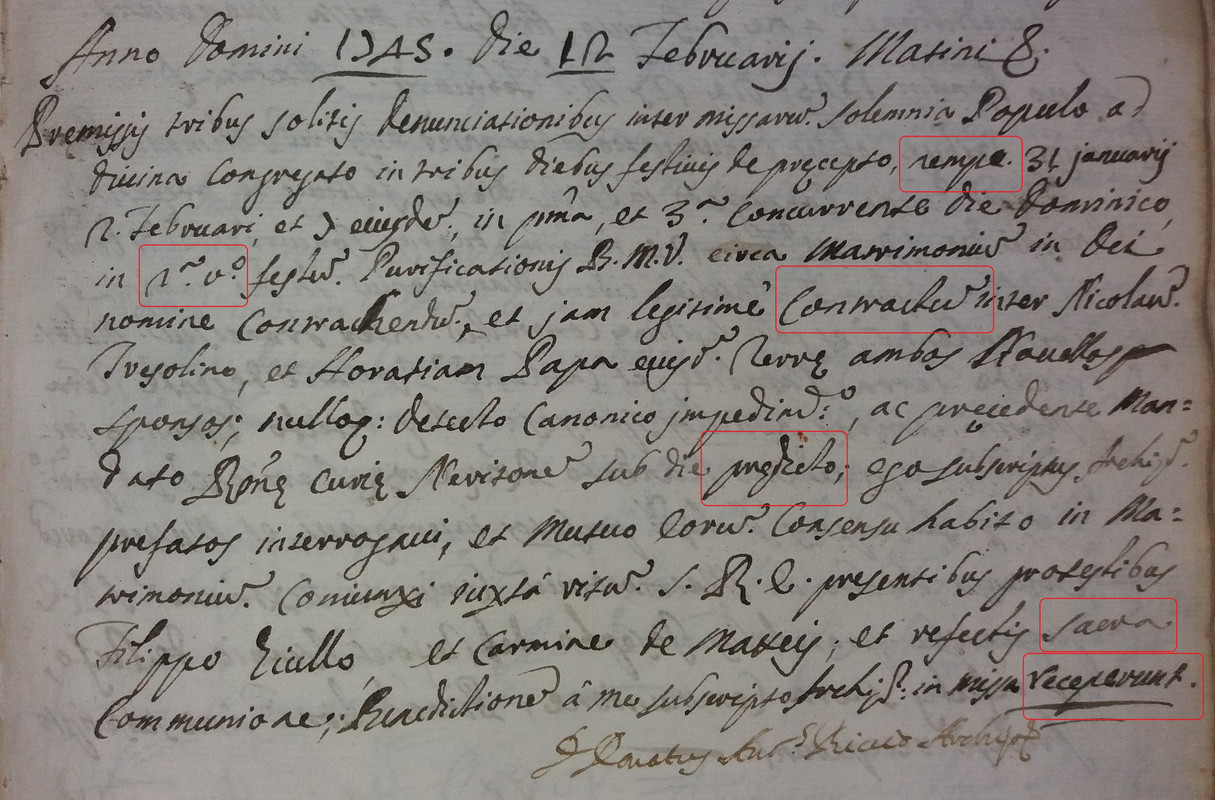 Anno Domini 1745. die 12 Februarij. Matini &.
Premissis tribus solitis denunciationibus inter missarũ solemnia Populo ad
divina Congregato in tribus diebus festivis de precepto, nempe. 31 januarij
2. Februari, et 7 eiusdẽ, in pma, et 3.a Concurrente die Dominico,
in 2.a v.o festũ. Purificationis B. M. V. circa Matrimoniũ in Dei
nomine Contrahendũ, et jam legitimè Contractũ inter Nicolaũ.
Tresolino, et Horatiam Papa eiusd. Terrę ambos Novellos
sponsos; nulloq: detecto Canonico impedimt:o, ac precedente Man=
dato Rṽnę Curię Neritonẽ sub die pręđicto; ego subscriptus Archip.
prefatos interrogavi, et Mutuo eorũ. Consensu habito in Ma=
trimoniũ. Coniunxi iuxtà ritũ S. R. E. presentibus protestibus
Filippo Ziullo, et Carmine de Matteis; et refectis sacra
Communione; Benedictionẽ à me subscripto Archip: in missa receperunt.
D. Donatus Ant. Riccio Archip